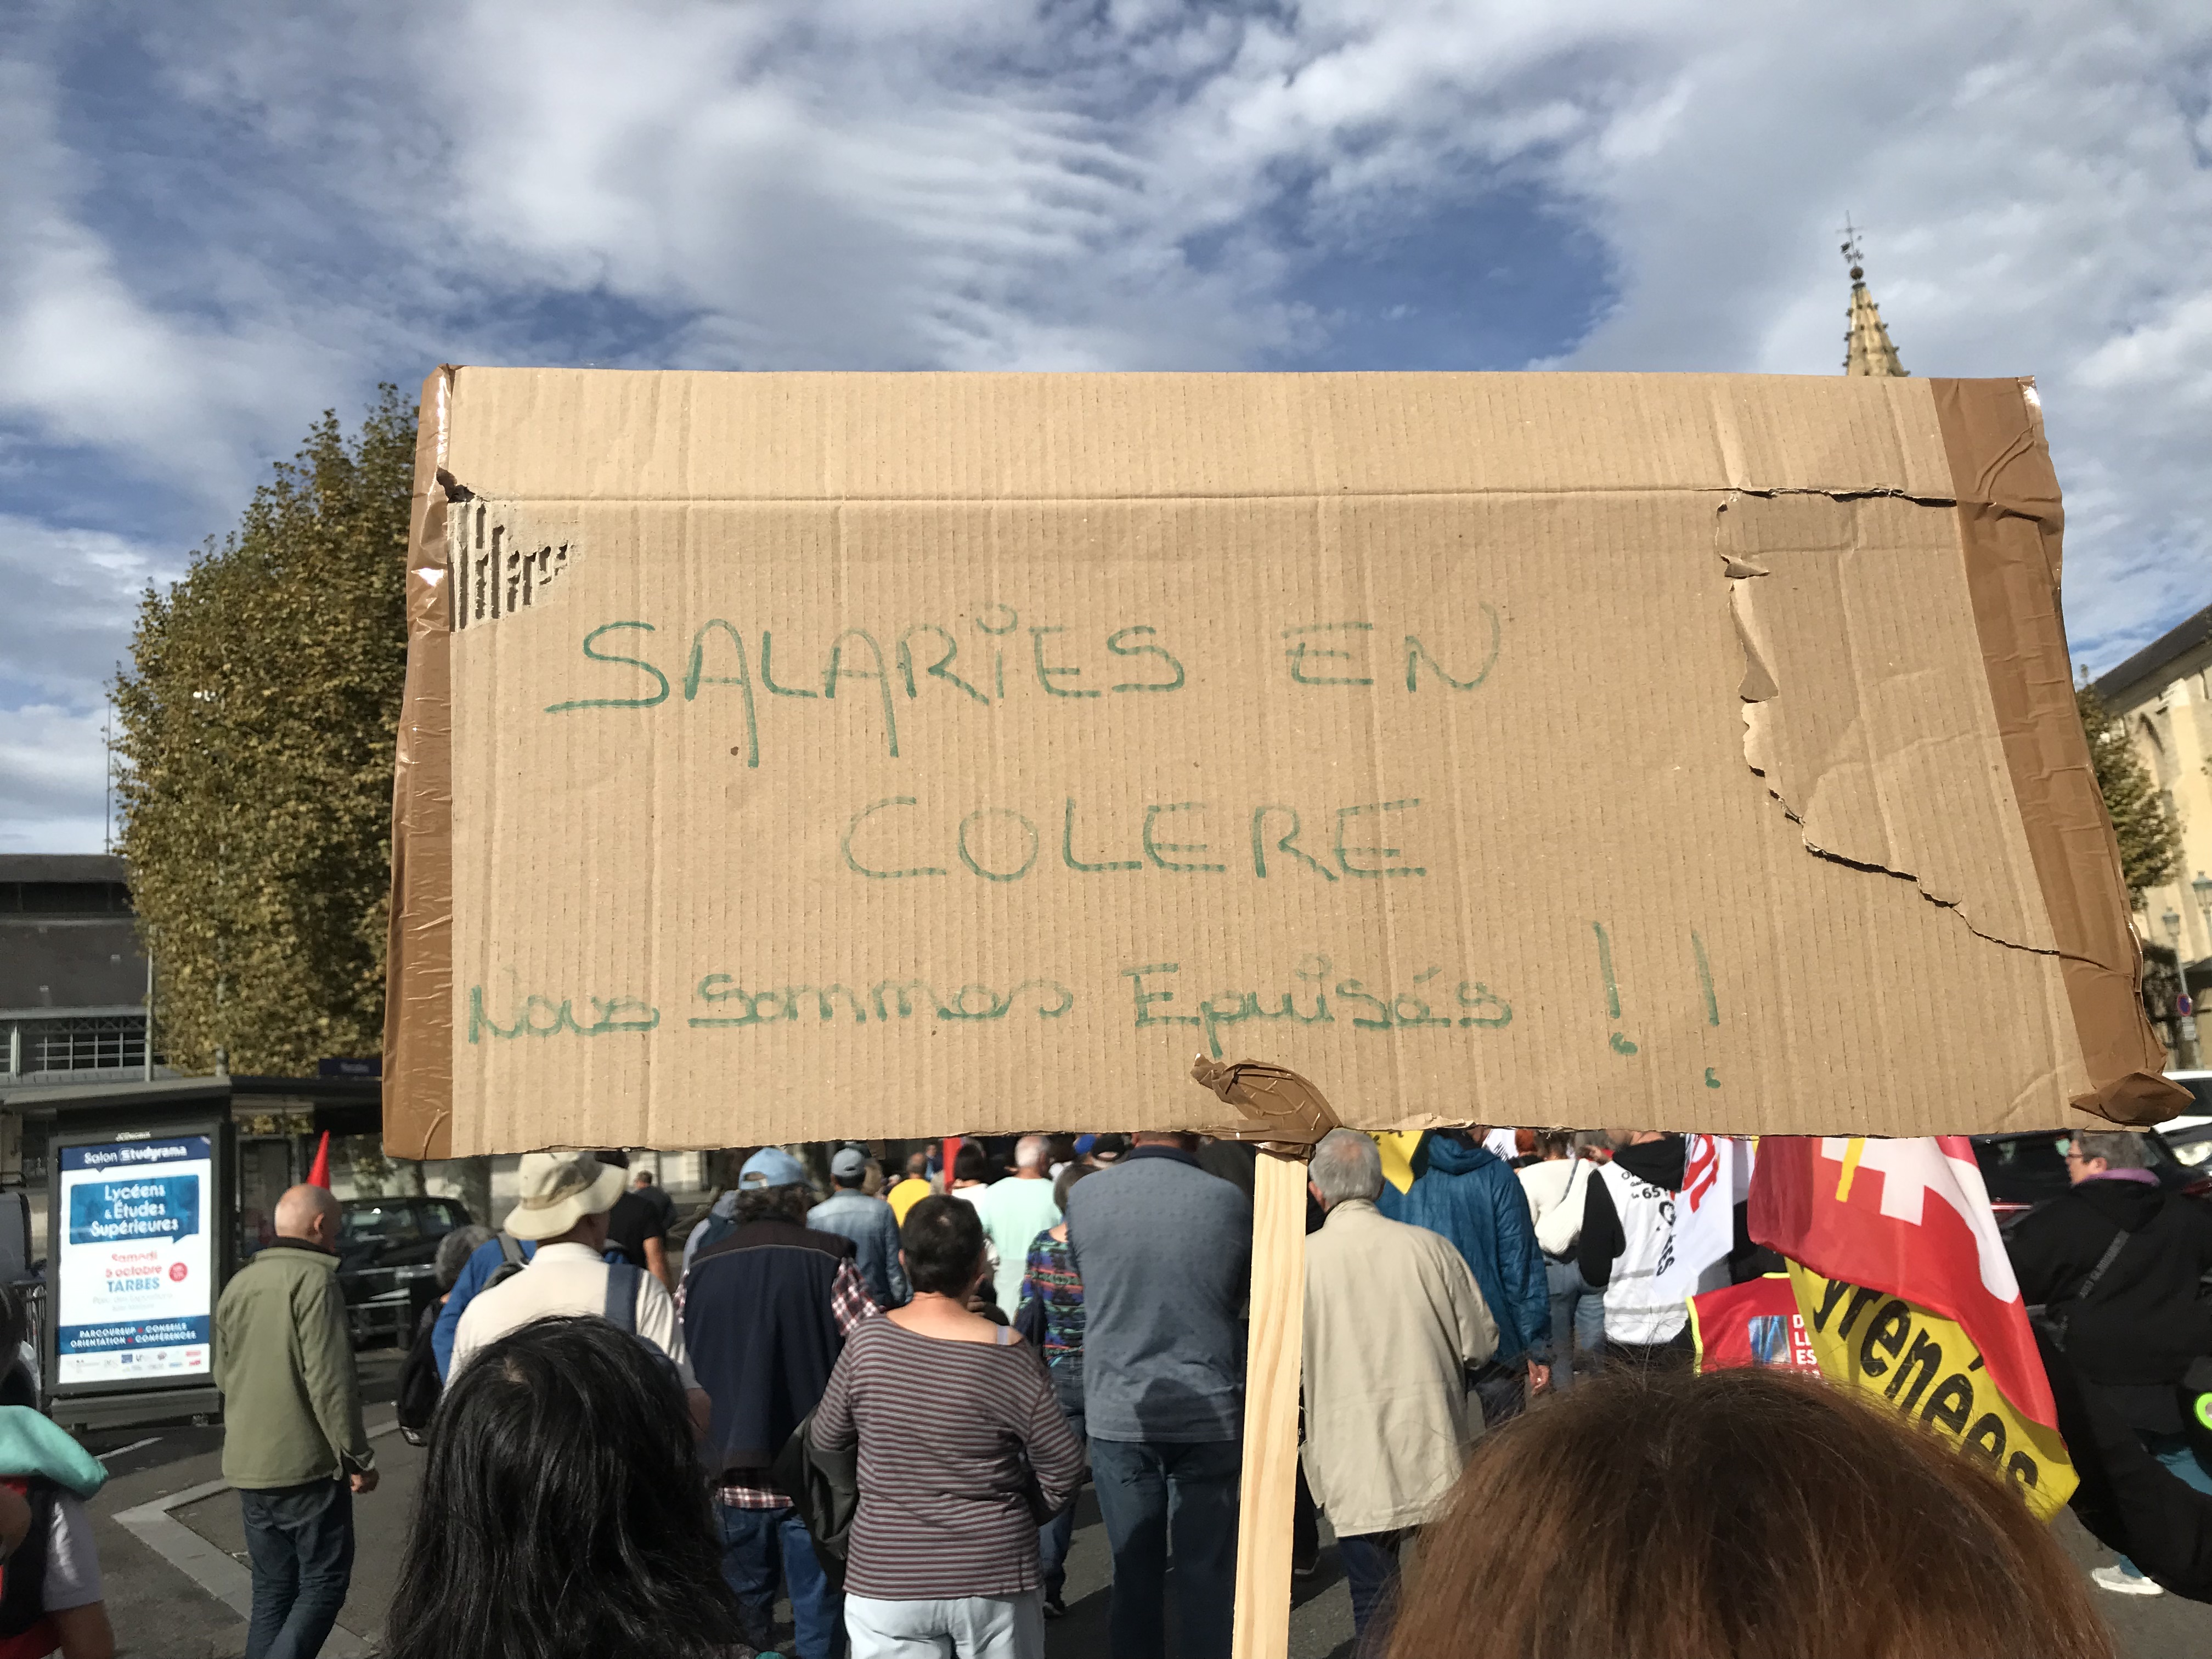 SALARiES EN
COLERE
Nous Sommes Epuisés !!
JCDecaux
Salon Studyrama
Lycéens
& Études
Supérieures
Samedi
5 octobre
TARBES
PARCOURSUP • CONSEILS
ORIENTATION • CONFÉRENCES
le 65
yrénées